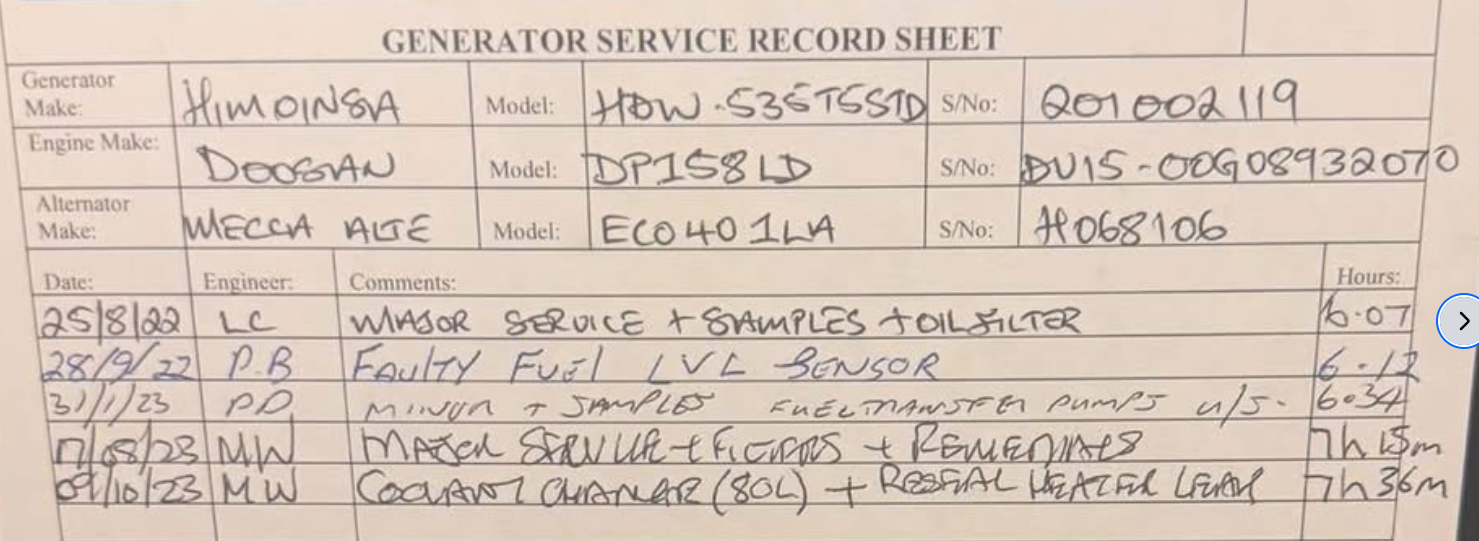 GENERATOR SERVICE RECORD SHEET
Generator Make: HIMOINSA Model: HDW-535T5STD S/No: 201002119
Engine Make: DOOSAN Model: DP158LD S/No: DV15-00G08932070
Alternator Make: MECCA ALTE Model: ECO401LA S/No: H068106
Date: Engineer: Comments: Hours:
25/8/22 LC MAJOR SERVICE + SAMPLES + OIL FILTER 6.07
28/9/22 P.B FAULTY FUEL LVL SENSOR 6.12
31/1/23 PD MINOR + SAMPLES FUEL TRANSFER PUMPS u/s. 6.34
17/08/23 MW MAJOR SERVICE + FILTERS + REMEDIALS 7h 15m
09/10/23 MW COOLANT CHANGE (80L) + RESEAL HEATER LEAK 7h 36m